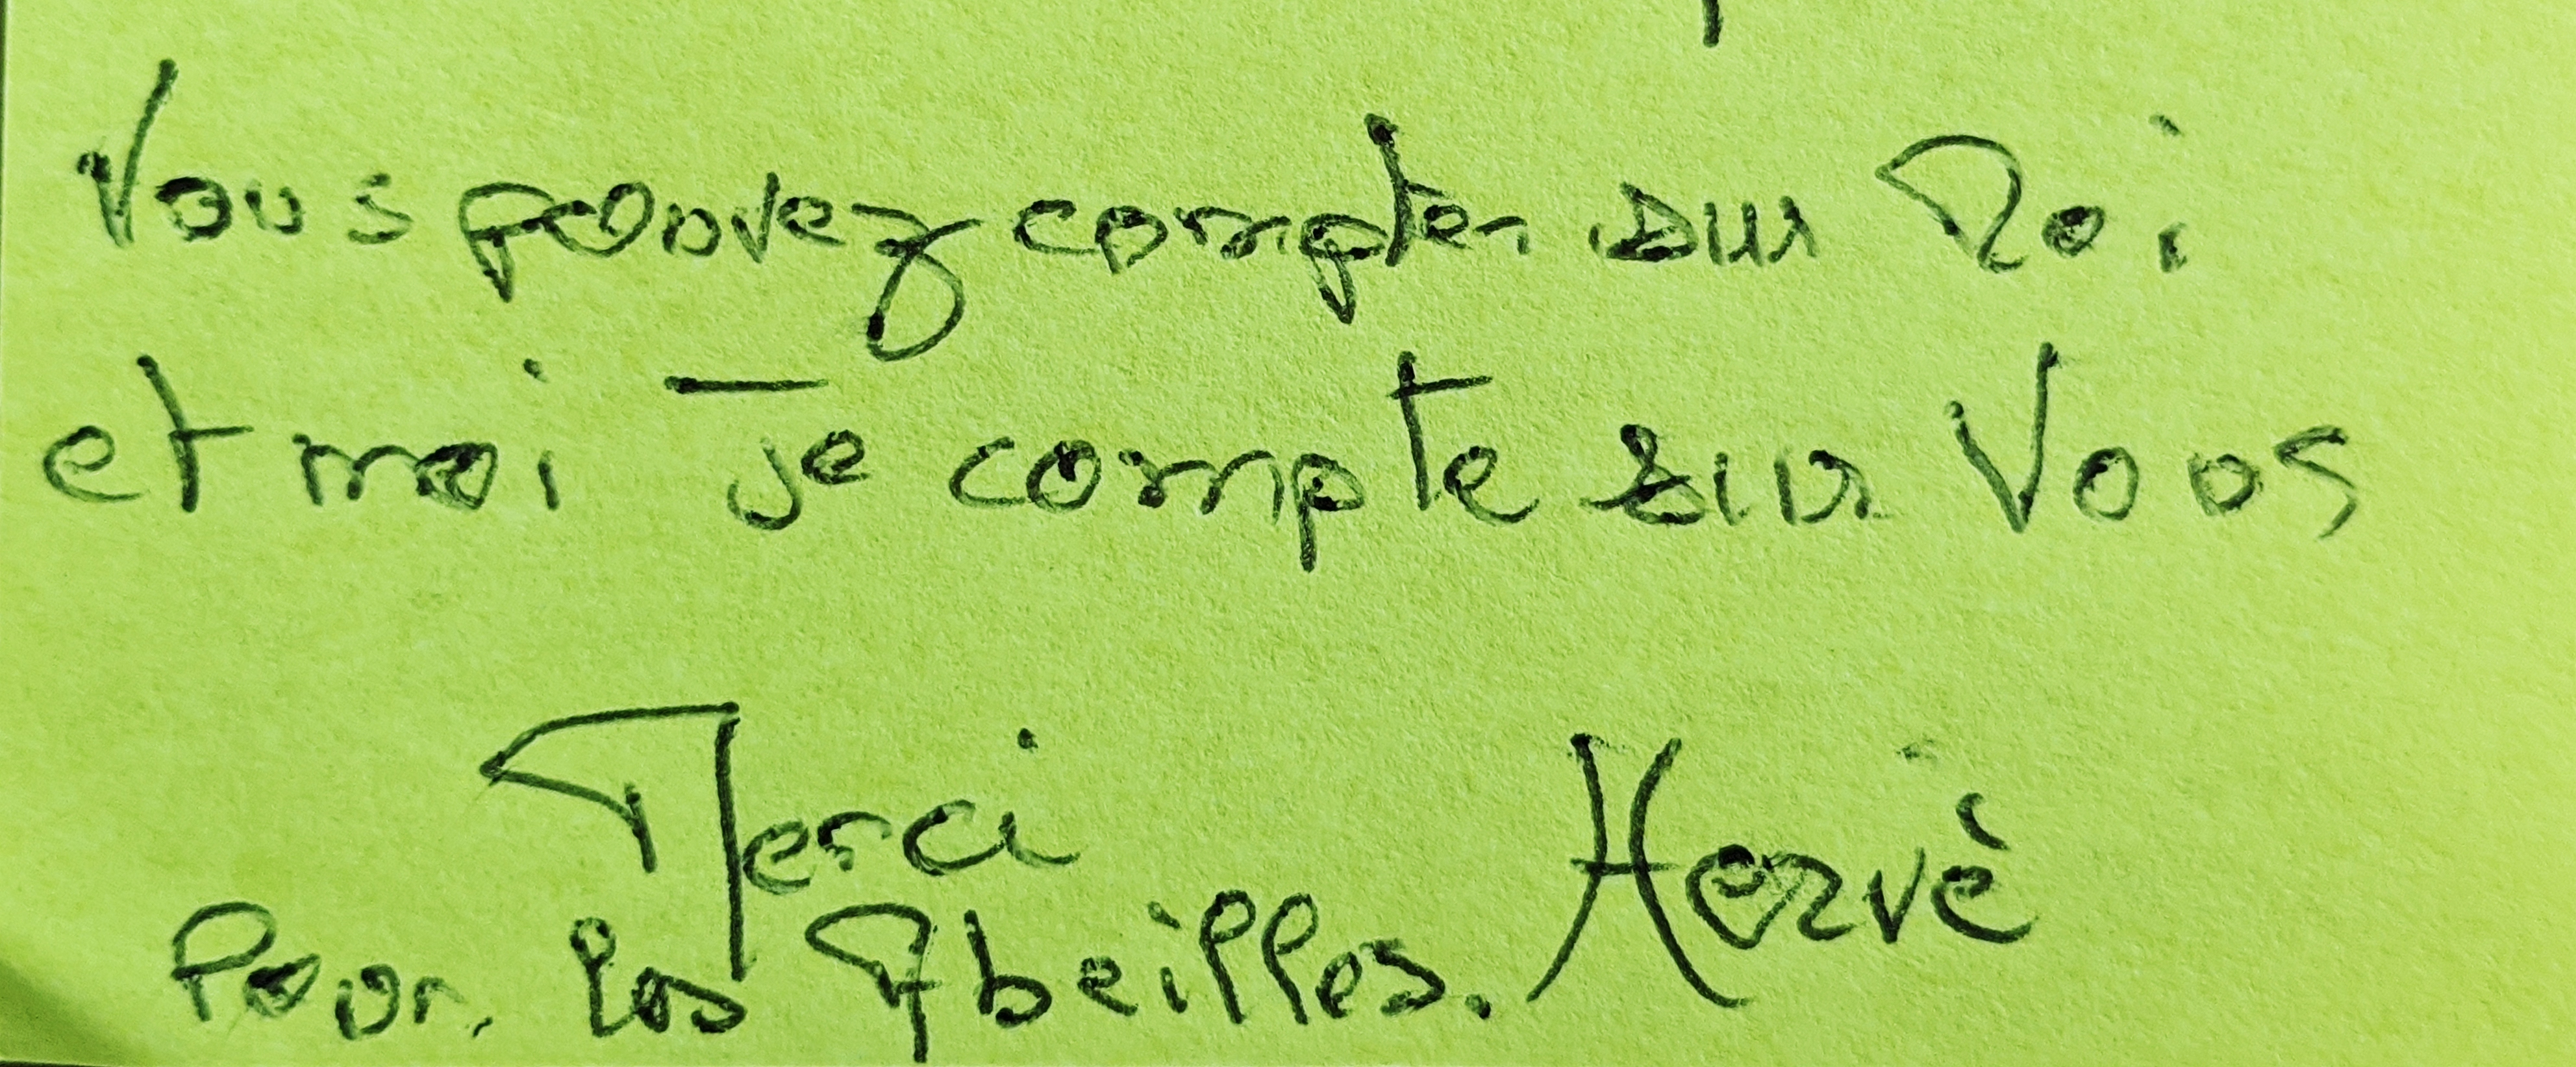 Vous pouvez compter sur Moi
et moi Je compte sur Vous
Merci
Hervé
Pour les Abeilles.